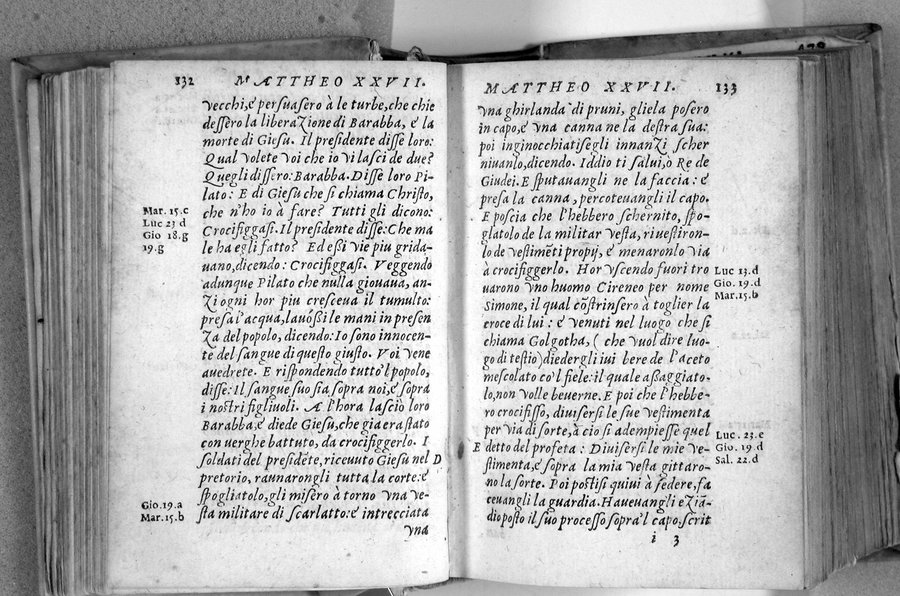 132 MATTHEO XXVII.
vecchi,e persuasero à le turbe,che chie
dessero la liberazione di Barabba, e la
morte di Giesù. Il presidente disse loro:
Qual volete voi che io vi lasci de due?
Quegli dissero: Barabba. Disse loro Pi-
lato: E di Giesù che si chiama Christo,
che n'ho io à fare? Tutti gli dicono:
Crocifiggasi. Il presidente disse: Che ma
le ha egli fatto? Ed eßi vie piu grida-
uano,dicendo: Crocifiggasi. Veggendo
adunque Pilato che nulla giouaua, an-
zi ogni hor piu cresceua il tumulto:
presa l'acqua,lauoßi le mani in presen
za del popolo, dicendo: Io sono innocen-
te del sangue di questo giusto. Voi ve ne
auedrete. E rispondendo tutto'l popolo,
disse: Il sangue suo sia sopra noi,e sopra
i nostri figliuoli. A l'hora lasciò loro
Barabba,e diede Giesù,che gia era stato
con uerghe battuto, da crocifiggerlo. I
soldati del presidẽte, riceuuto Giesù nel D
pretorio, raunarongli tutta la corte: e
spogliatolo,gli misero à torno vna ve-
sta militare di scarlatto: e intrecciata
vna
Mar. 15.c
Luc 23 d
Gio 18.g
19.g
Gio.19.a
Mar.15.b
MATTHEO XXVII. 133
vna ghirlanda di pruni, gliela posero
in capo,e vna canna ne la destra sua:
poi inginocchiatisegli innanzi scher
niuanlo,dicendo. Iddio ti salui,o Re de
Giudei. E sputauangli ne la faccia: e
presa la canna, percoteuangli il capo.
E poscia che l'hebbero schernito, spo-
gliatolo de la militar vesta, riuestiron-
lo de vestimẽti proprij, e menaronlo via
à crocifiggerlo. Hor vscendo fuori tro
uarono vno huomo Cireneo per nome
Simone, il qual cõstrinsero à toglier la
croce di lui: e venuti nel luogo che si
chiama Golgotha, ( che vuol dire luo-
go di testio)diedergli iui bere de l'aceto
mescolato co'l fiele: il quale aßaggiato-
lo,non volle beuerne. E poi che l'hebbe-
ro crocifisso, diuisersi le sue vestimenta
per via di sorte,à cio si adempiesse quel
E detto del profeta: Diuisersi le mie ve-
stimenta,e sopra la mia vesta gittaro-
no la sorte. Poi postisi quiui à sedere,fa
ceuangli la guardia. Haueuangli eziã-
dio posto il suo processo sopra'l capo,scrit
i 3
Luc 13.d
Gio.19.d
Mar.15.b
Luc. 23.e
Gio. 19.d
Sal. 22.d